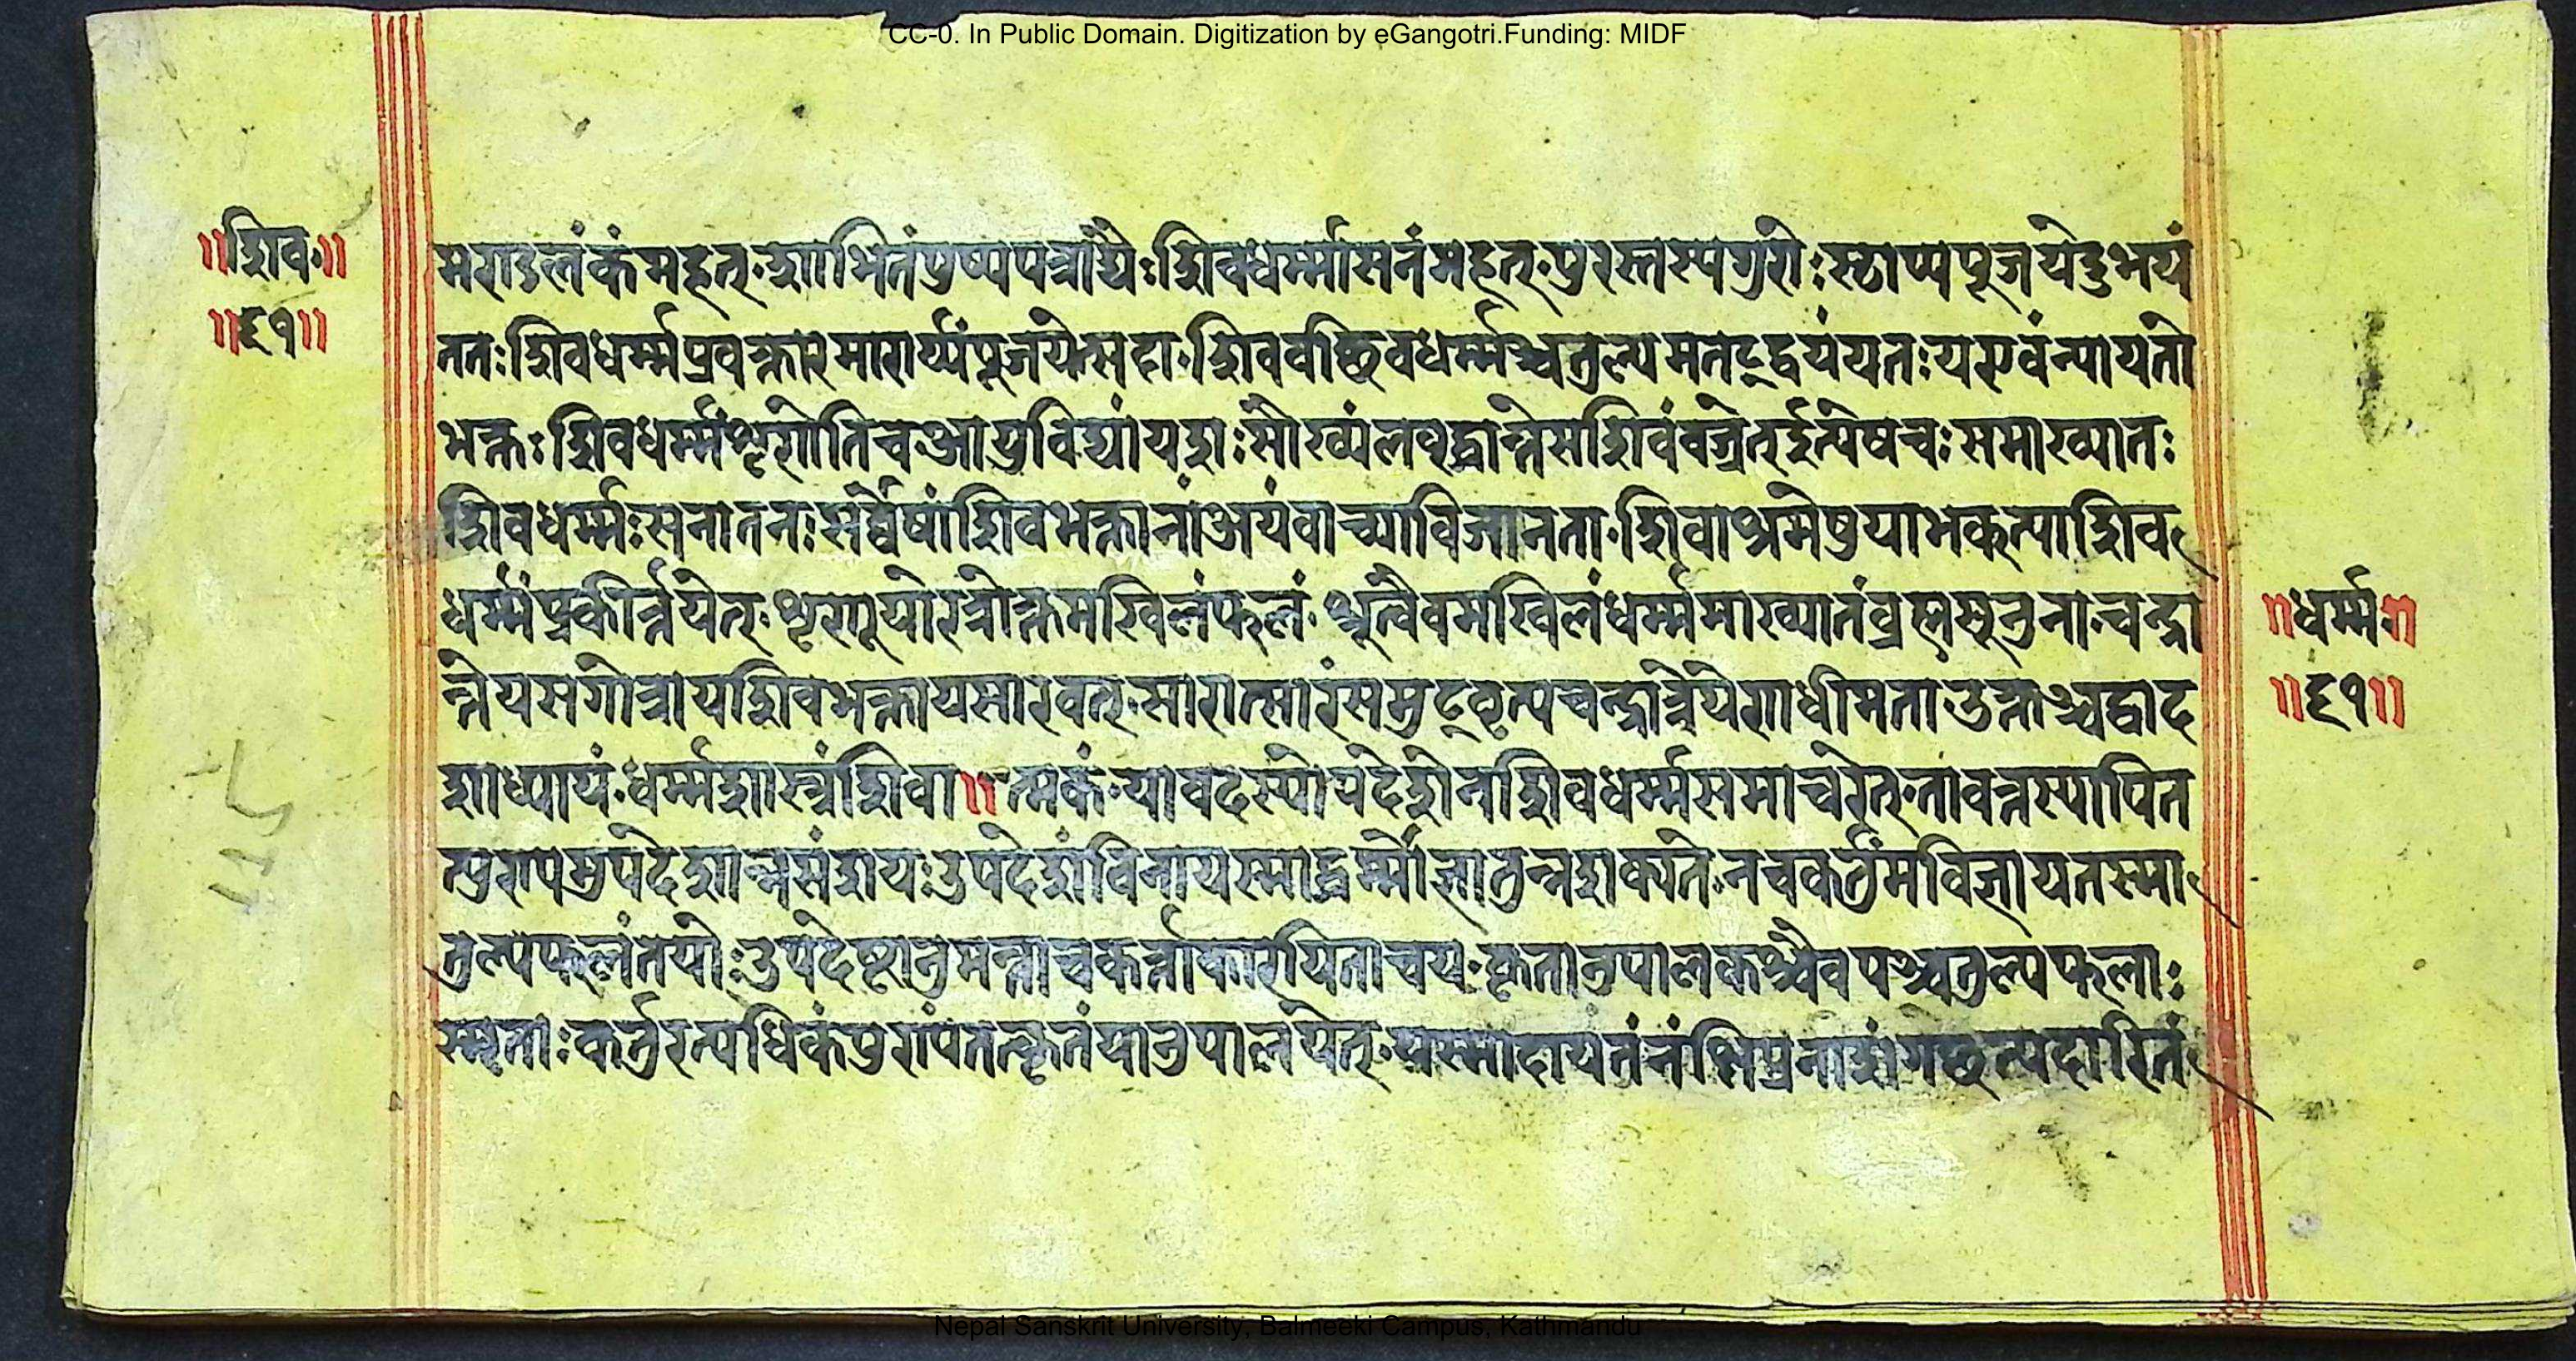 CC-0. In Public Domain. Digitization by eGangotri.Funding: MIDF
॥शिव॥
॥६१॥
मण्डलंकंमहत्·शोभितंपुष्पपत्राद्यैः शिवधर्म्मासनंमहत्·पुरस्तस्यगुरोः स्थाप्यपूजयेदुभयं
ततः शिवधर्म्मप्रवक्तारमाचार्य्यंपूजयेत्सदा·शिववच्छिवधर्म्मञ्चतुल्यमेतद्द्वयंयतः यएवंन्यायतो
भक्तः शिवधर्म्मंशृणोतिचआयुर्विद्यांयशः सौख्यंलब्ध्वान्तेसशिवंव्रजेत्इत्येषचः समाख्यातः
शिवधर्म्मः सनातनः सर्व्वेषांशिवभक्तानांअयंवाच्योविजानता·शिवाश्रमेषुयोभक्त्याशिव
धर्म्मंप्रकीर्त्तयेत्·शृणुयात्तत्रोक्तमखिलंफलं·श्रुत्वैवमखिलंधर्म्ममाख्यातंब्रह्मसूनुना·चन्द्रा
त्रेयसगोत्रायशिवभक्तायसारवत्·सारात्सारंसमुद्धृत्यचन्द्रात्रेयेणधीमता·उक्तञ्चद्वाद
शाध्यायं·धर्म्मशास्त्रंशिवा॥त्मकं·यावदस्योपदेशेनशिवधर्म्मसमाचरेत्·तावत्तस्यापित
त्पुण्यमुपदेशान्नसंशयः उपदेशंविनायस्माद्धर्म्मोज्ञातुन्नशक्यते·नचकर्तुमविज्ञायतस्मा
तुल्यफलंतयोः उपदेष्टानुमन्ताचकर्त्ताकारयिताचयः कृतानुपालकश्चैवपञ्चतुल्यफलाः
स्मृताः कर्तुरत्यधिकंपुण्यंतत्कृतंयोनुपालयेत्·यस्मादायतनंक्षिप्रनाशंगच्छत्यदारितं
॥धर्म्म॥
॥६१॥
Nepal Sanskrit University, Balmeeki Campus, Kathmandu